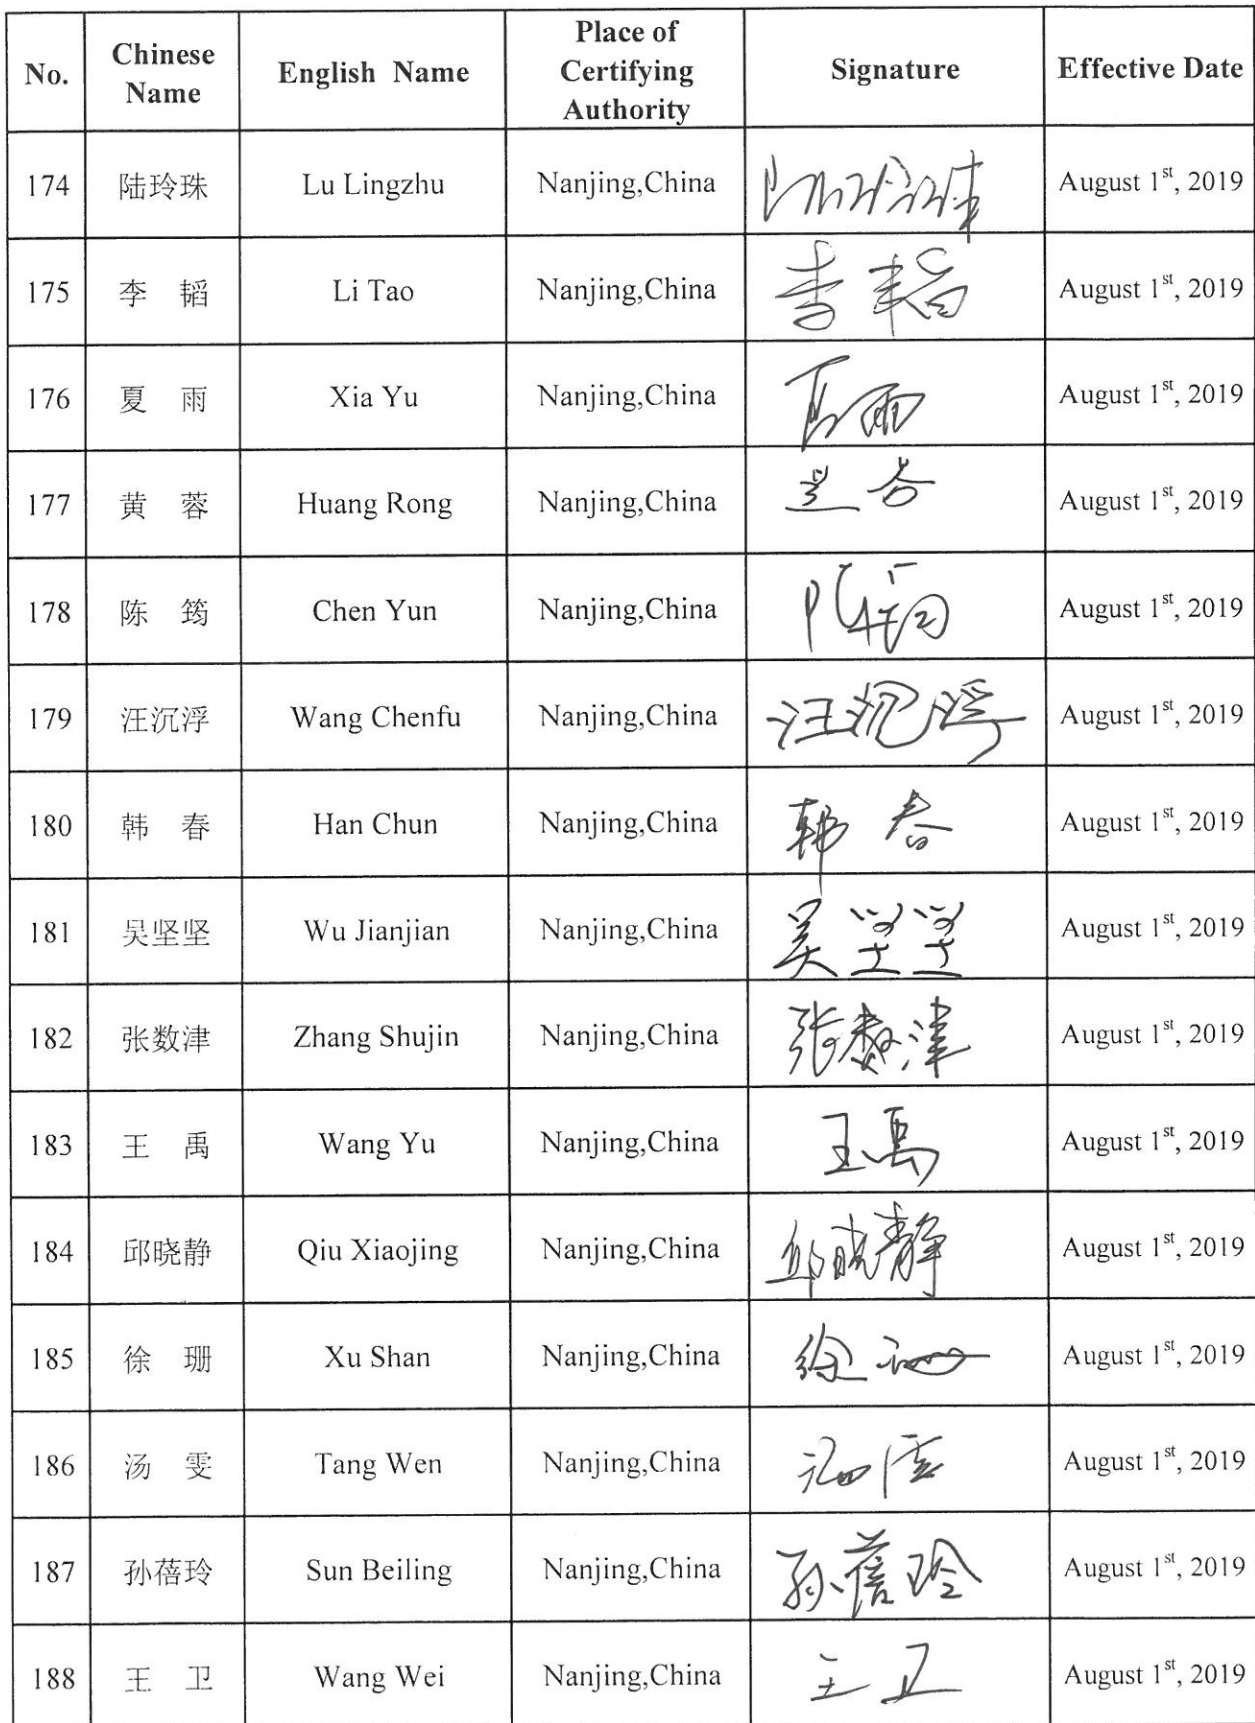 No. Chinese Name English Name Place of Certifying Authority Signature Effective Date
174 陆玲珠 Lu Lingzhu Nanjing,China 陆玲珠 August 1st, 2019
175 李 韬 Li Tao Nanjing,China 李韬 August 1st, 2019
176 夏 雨 Xia Yu Nanjing,China 夏雨 August 1st, 2019
177 黄 蓉 Huang Rong Nanjing,China August 1st, 2019
178 陈 筠 Chen Yun Nanjing,China 陈筠 August 1st, 2019
179 汪沉浮 Wang Chenfu Nanjing,China 汪沉浮 August 1st, 2019
180 韩 春 Han Chun Nanjing,China 韩春 August 1st, 2019
181 吴坚坚 Wu Jianjian Nanjing,China 吴坚坚 August 1st, 2019
182 张数津 Zhang Shujin Nanjing,China 张数津 August 1st, 2019
183 王 禹 Wang Yu Nanjing,China 王禹 August 1st, 2019
184 邱晓静 Qiu Xiaojing Nanjing,China 邱晓静 August 1st, 2019
185 徐 珊 Xu Shan Nanjing,China 徐珊 August 1st, 2019
186 汤 雯 Tang Wen Nanjing,China August 1st, 2019
187 孙蓓玲 Sun Beiling Nanjing,China 孙蓓玲 August 1st, 2019
188 王 卫 Wang Wei Nanjing,China 王卫 August 1st, 2019